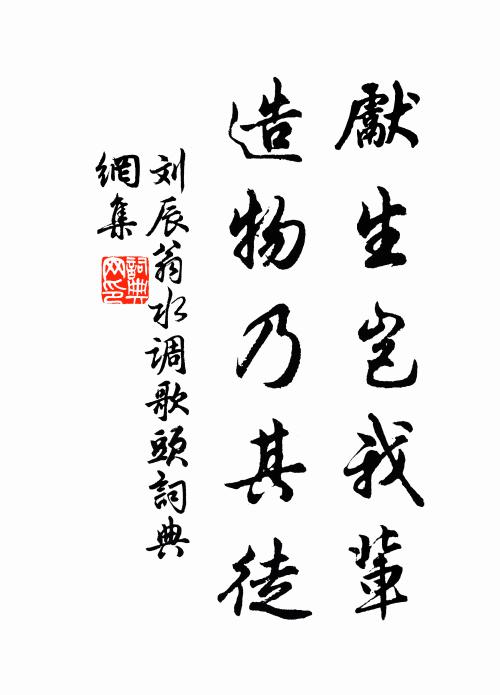 獻生豈我輩
造物乃其徒
刘辰翁水调歌頭詞典
網集
詞典
网印